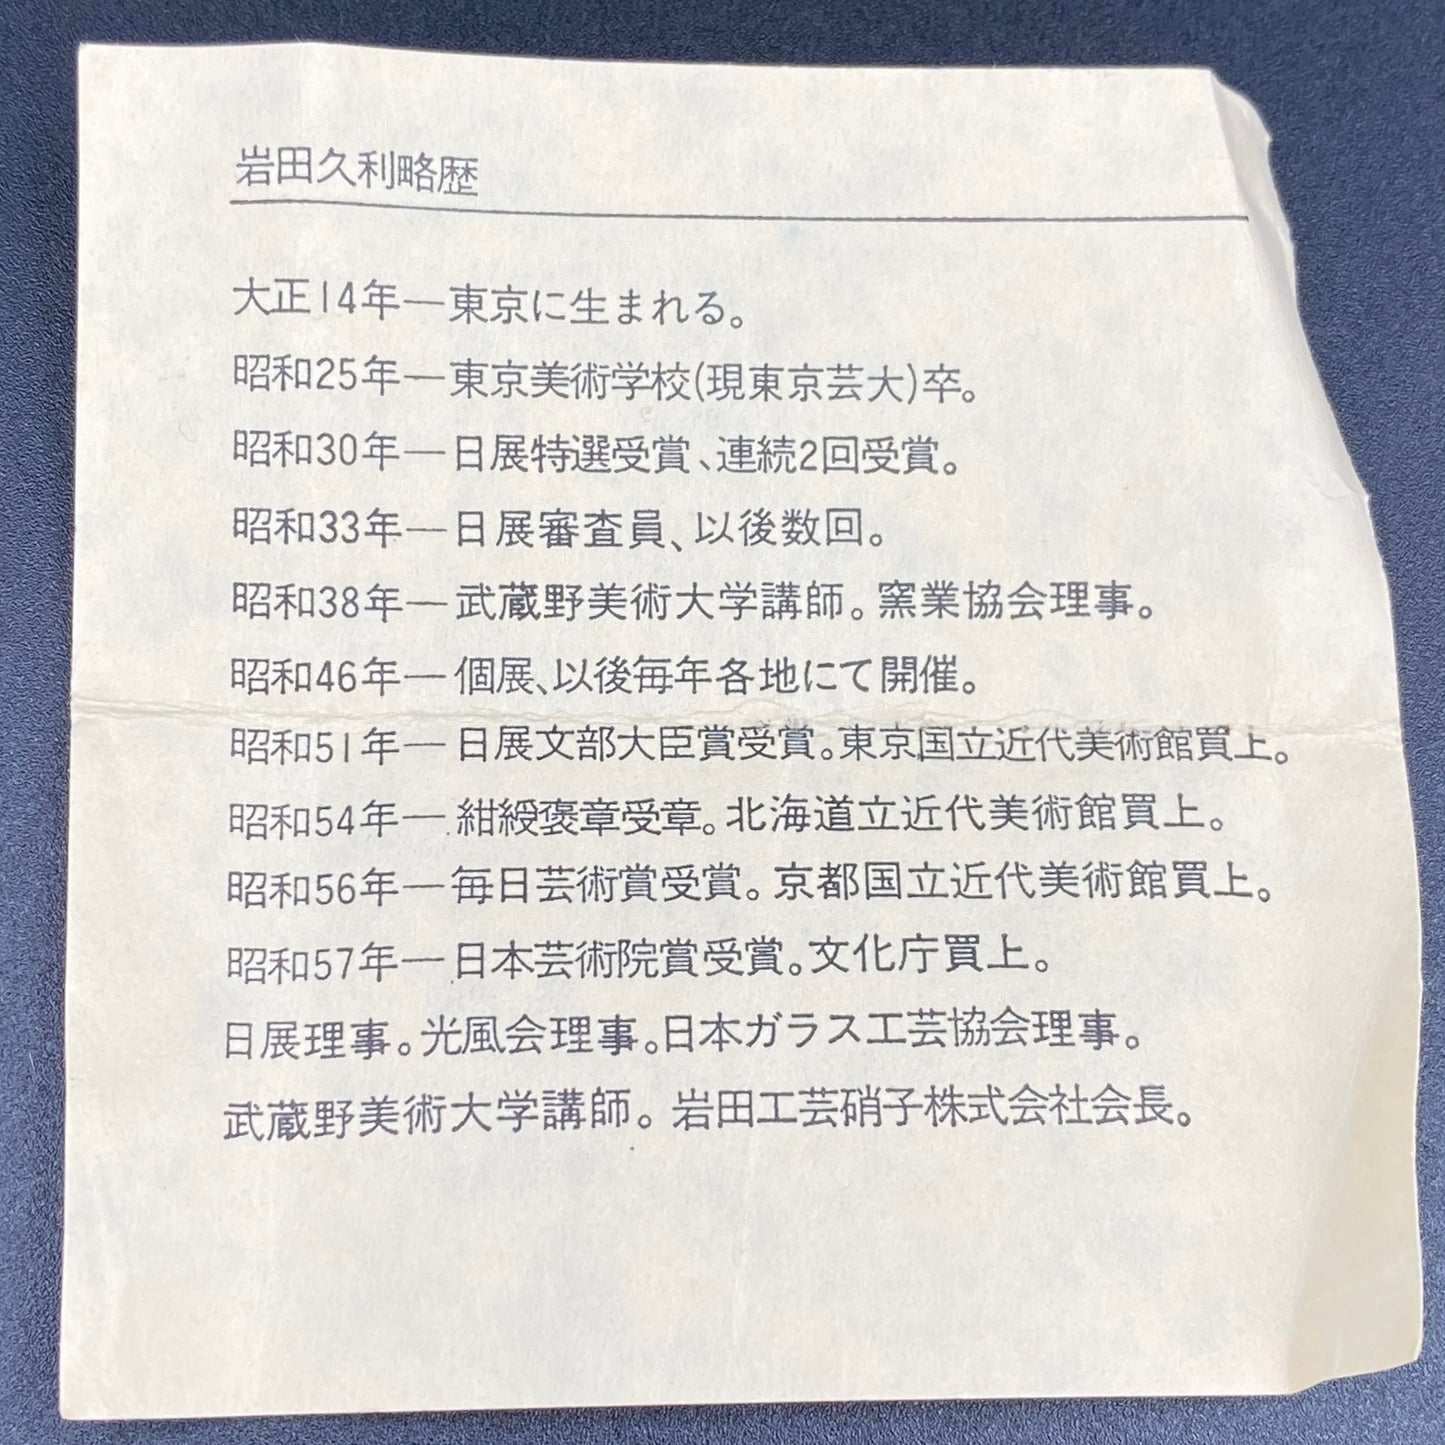 岩田久利略歴
大正14年―東京に生まれる。
昭和25年―東京美術学校(現東京芸大)卒。
昭和30年―日展特選受賞、連続2回受賞。
昭和33年―日展審査員、以後数回。
昭和38年―武蔵野美術大学講師。窯業協会理事。
昭和46年―個展、以後毎年各地にて開催。
昭和51年―日展文部大臣賞受賞。東京国立近代美術館買上。
昭和54年―紺綬褒章受章。北海道立近代美術館買上。
昭和56年―毎日芸術賞受賞。京都国立近代美術館買上。
昭和57年―日本芸術院賞受賞。文化庁買上。
日展理事。光風会理事。日本ガラス工芸協会理事。
武蔵野美術大学講師。岩田工芸硝子株式会社会長。